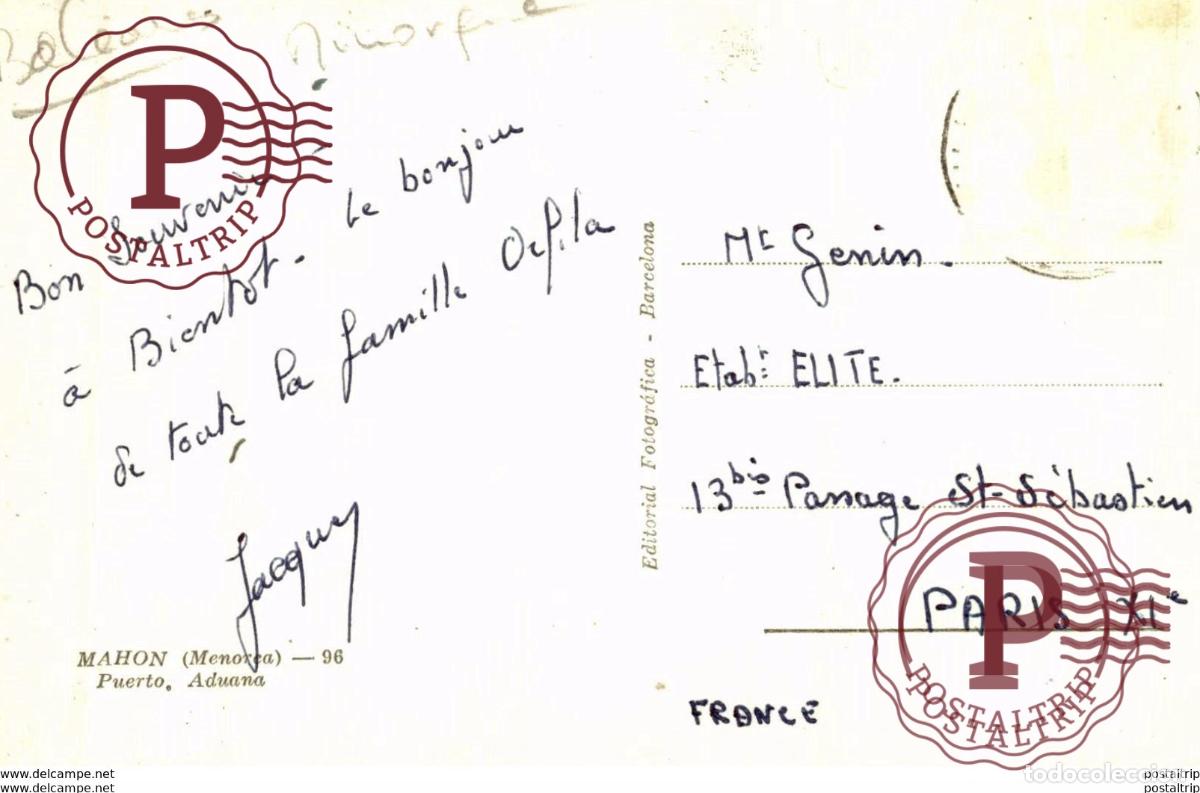 Baléares Minorque
P
POSTALTRIP
Bon Souvenir
à Bientot. Le bonjour
de toute la famille Orfila
Jacques
MAHON (Menorca) — 96
Puerto, Aduana
Editorial Fotográfica - Barcelona
Mr Genin.
Etabt ELITE.
13bis Passage St-Sébastien
PARIS XIe
FRANCE
P
POSTALTRIP
POSTALTRIP
www.delcampe.net
www.delcampe.net
postaltrip
postaltrip
todocoleccion